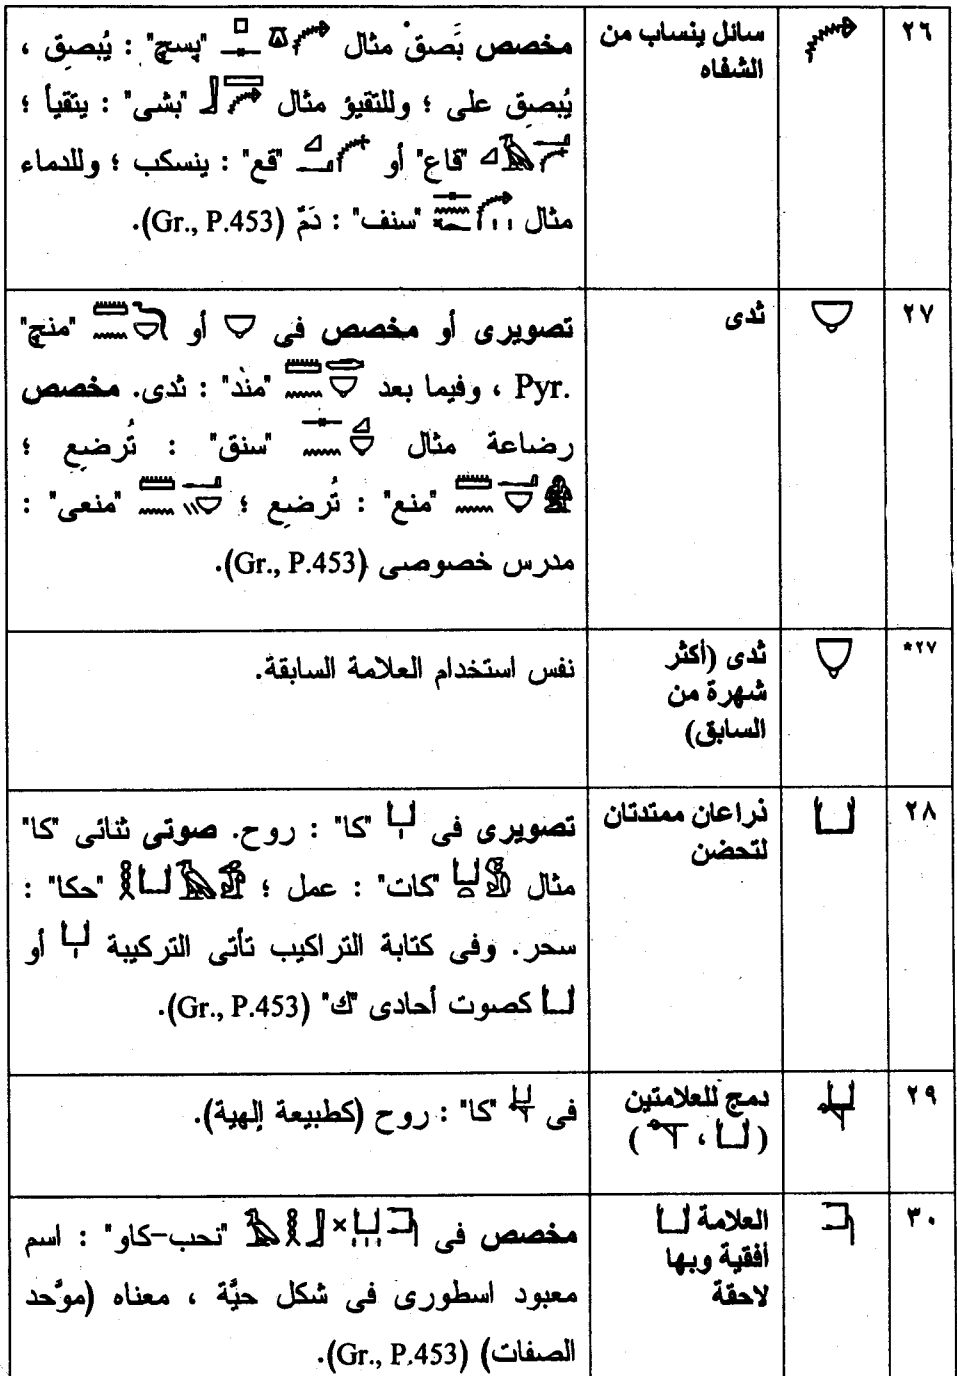 ٢٦ سائل ينساب من الشفاه مخصص بَصقْ مثال "پسچ" : يُبصق ،
يُبصق على ؛ وللتقيؤ مثال "بشى" : يتقيأ ؛
"قاع" أو "قع" : ينسكب ؛ وللدماء
مثال "سنف" : دَمٌ (Gr., P.453).
٢٧ ثدى تصويرى أو مخصص فى أو "منچ"
Pyr. ، وفيما بعد "مند" : ثدى. مخصص
رضاعة مثال "سنق" : تُرضع ؛
"منع" : تُرضع ؛ "منعى" :
مدرس خصوصى (Gr., P.453).
*٢٧ ثدى (أكثر شهرة من السابق) نفس استخدام العلامة السابقة.
٢٨ ذراعان ممتدتان لتحضن تصويرى فى "كا" : روح. صوتى ثنائى "كا"
مثال "كات" : عمل ؛ "حكا" :
سحر. وفى كتابة التراكيب تأتى التركيبة أو
كصوت أحادى "ك" (Gr., P.453).
٢٩ دمج للعلامتين ( ، ) فى "كا" : روح (كطبيعة إلهية).
٣٠ العلامة أفقية وبها لاحقة مخصص فى "نحب-كاو" : اسم
معبود اسطورى فى شكل حيَّة ، معناه (موَّحد
الصفات) (Gr., P.453).